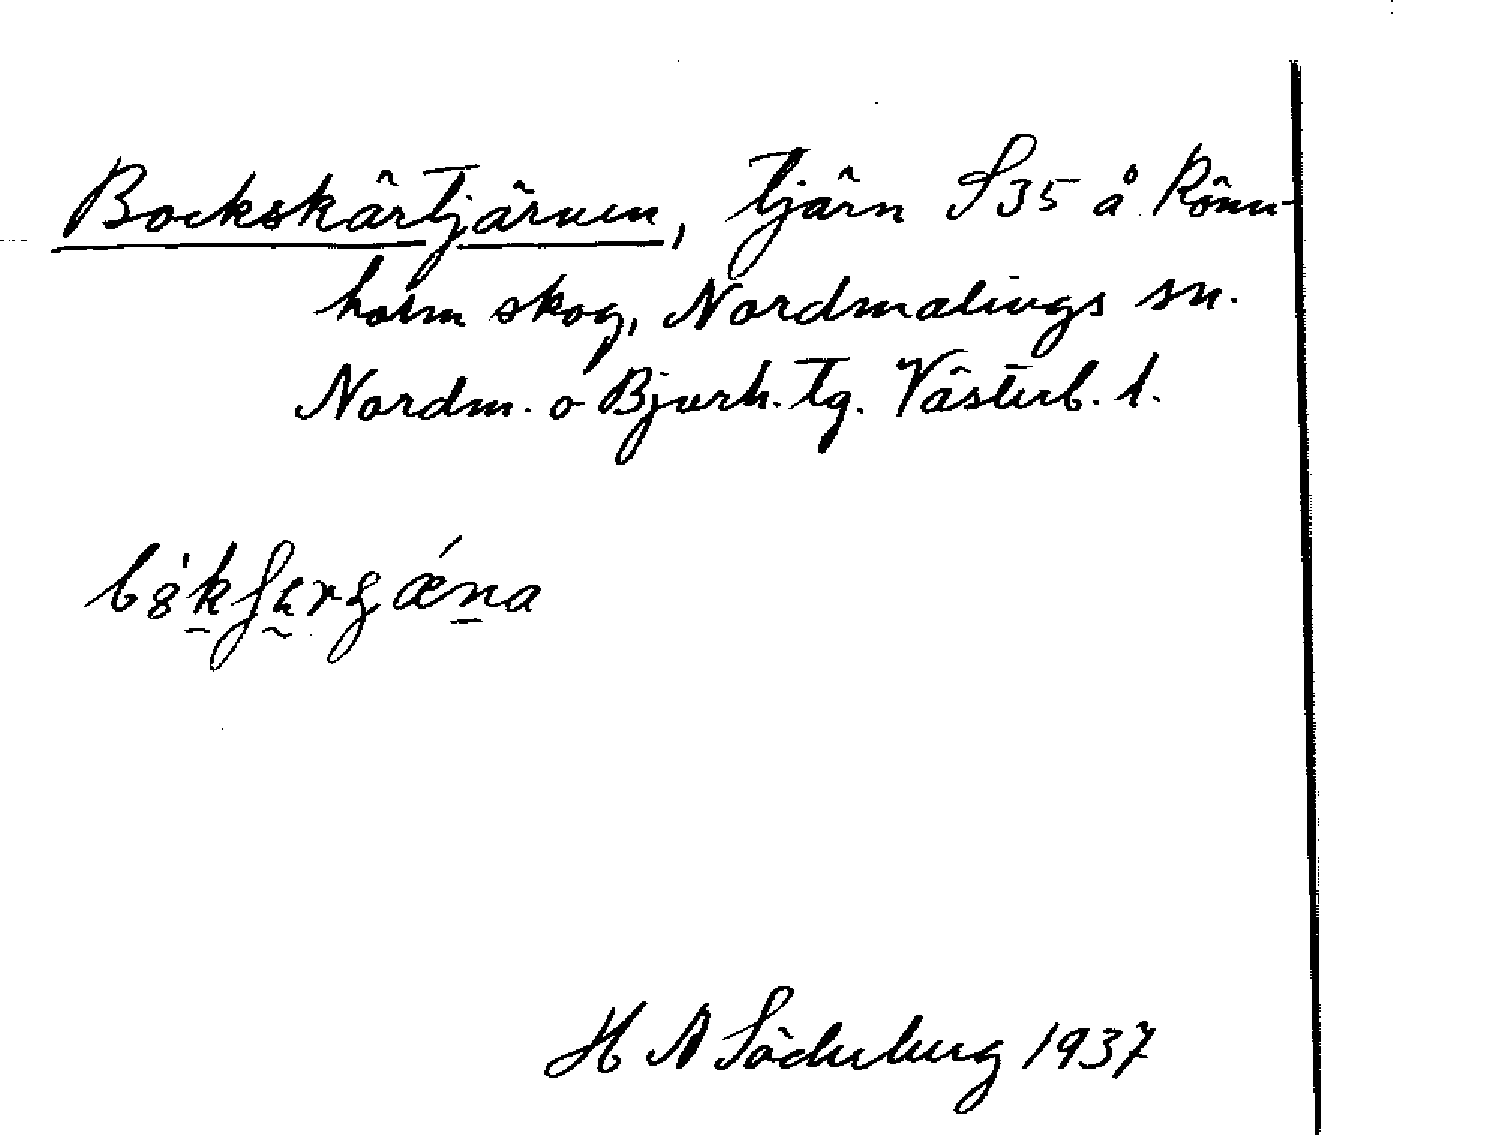 Bockskärtjärnen, tjärn S35 å Rönn-
holm skog, Nordmalings sn.
Nordm. o Bjurh. tg. Västerb. l.
H A Söderberg 1937